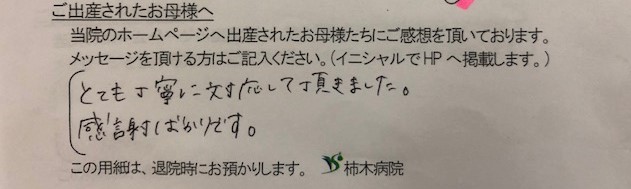 ご出産されたお母様へ
当院のホームページへ出産されたお母様たちにご感想を頂いております。
メッセージを頂ける方はご記入ください。(イニシャルでHPへ掲載します。)
とても丁寧に対応して頂きました。
感謝ばかりです。
この用紙は、退院時にお預かりします。 柿木病院